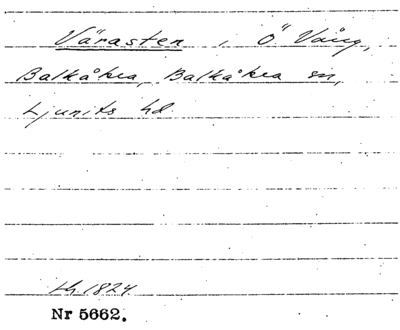 Värasten i Ö Vång,
Balkåkra, Balkåkra sn,
Ljunits hd.
Lh. 1824.
Nr 5662.